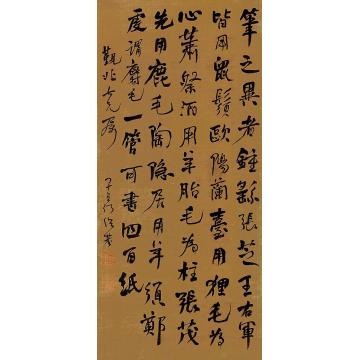 筆之異者鍾繇張芝王右軍
皆用鼠鬚歐陽蘭臺用狸毛為
心蕭祭酒用羊胎毛為柱張茂
先用鹿毛陶隱居用羊須鄭
虔謂麝毛一管可書四百紙
觀兆六兄屬